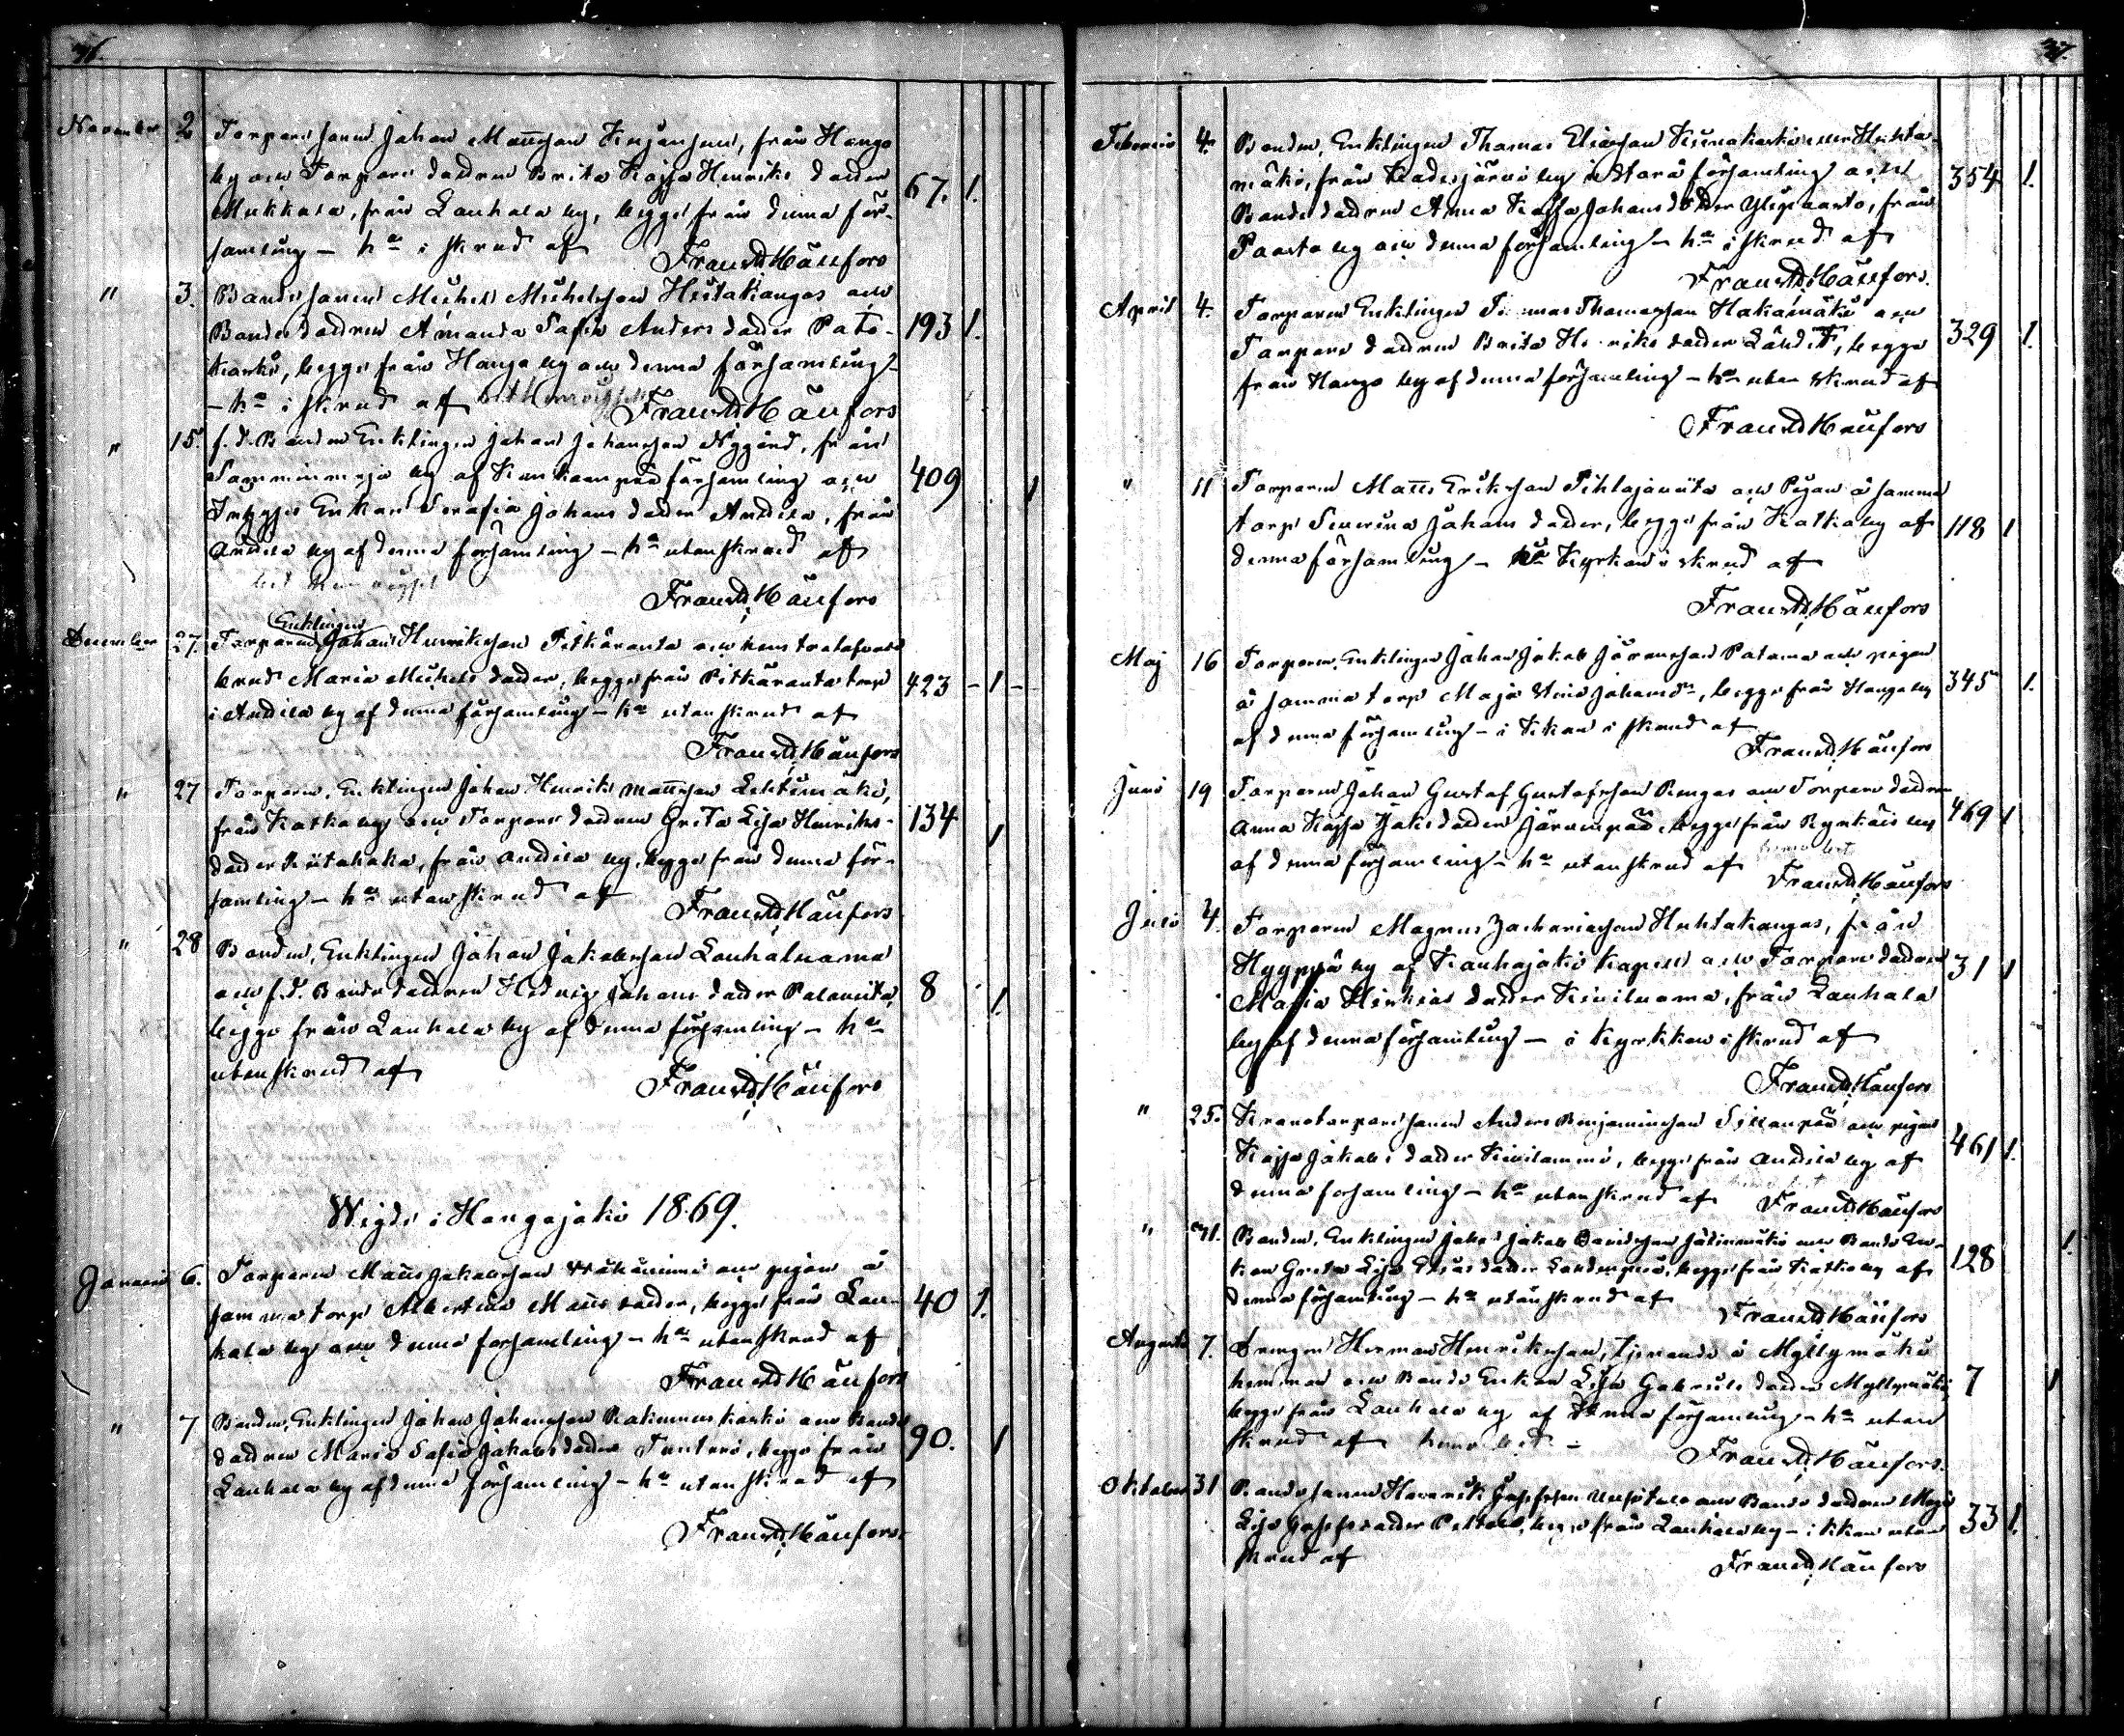 36.
November 2 Torpare sonen Johan Mattsson Kujansuu, från Honga
by och Torpare dottren Brita Kajsa Henriks dotter
Mukkala, från Lauhala by, begge från denna för-
samling – h:a i skrud af 67. 1.
Franz H. Hänfors
" 3. Bonde sonen Michel Michelsson Hietakangas och
Bonde dottren Amanda Sofia Anders dotter Pato-
karhi, begge från Honga by och denna församling – 193 1.
– h:a i skrud af Franz H. Hänfors
" 15. f.d. Bonden Enklingen Johan Johansson Nygård, från
by af Kankaanpää församling och 409 1
Enkan Serafia Johans dotter Andila, från
Andila by af denna församling – h:a utan skrud af
Franz H. Hänfors
Enklingen
December 27. Torparen Johan Henriksson Pitkäranta och hans trolofvade
brud Maria Michels dotter, begge från Pitkäranta torp 423 – 1 –
i Andila by af denna församling – h:a utan skrud af
Franz H. Hänfors
" 27 Torparen, Enklingen Johan Henrik Mattsson Lehtimäki,
från Katka by och Torpare dottren Greta Lisa Henriks- 134 1
dotter Riitahaka, från Andila by, begge från denna för-
samling – h:a utan skrud af Franz H. Hänfors
" 28 Bonden, Enklingen Johan Jakobsson Lauhaluoma
och f.d. Bonde dottren Hedvig Johans dotter Palomita, 8 1.
begge från Lauhala by af denna församling – h:a
utan skrud af Franz H. Hänfors
Wigde i Hongojoki 1869.
Januari 6. Torparen Matts Jakobsson och pigan å
samma torp Albertina Matts dotter, begge från Lau- 40 1.
hala by och denna församling – h:a utan skrud af
Franz H. Hänfors
" 7 Bonden, Enklingen Johan Johansson och Bonde
dottren Maria Sofia Jakobs dotter, begge från 90. 1
Lauhala by af denna församling – h:a utan skrud af
Franz H. Hänfors.
37.
Februari 4. Bonden, Enklingen Thomas Eliasson eller Huhta-
mäki, från by i Storå församling och 354 1.
Bonde dottren Anna Kajsa Johans dotter Ylipaarto, från
Paarto by och denna församling – h:a i skrud af
Franz H. Hänfors.
April 4. Torparen Enklingen Thomas Thomasson Hakamäki och
Torpare dottren Brita Henriks dotter, begge 329 1.
från Honga by af denna församling – h:a utan skrud af
Franz H. Hänfors
" 11 Torparen Matts Eriksson Pihlajaniita och Pigan å samma
torp Severina Johans dotter, begge från Katka by af 118 1
denna församling – Kyrkan i skrud af
Franz H. Hänfors
Maj 16 Torparen, Enklingen Johan Jakob Göransson Patama och pigan
å samma torp Maja Stina Johansdr, begge från Honga by 345 1.
af denna församling – i Kkan i skrud af
Franz H. Hänfors
Juni 19 Torparen Johan Gustaf Gustafsson Rengas och Torpare dottren
Anna Kajsa Jakobs dotter Järvenpää, begge från by 469 1
af denna församling – h:a utan skrud af
Franz H. Hänfors
Juli 4. Torparen Magnus Zachariasson Huhtakangas, från
Hyyppä by af Kauhajoki Kapell och Torpare dottren 31 1
Maria dotter Kiviluoma, från Lauhala
by af denna församling – i Kyrkkan i skrud af
Franz H. Hänfors
" 25. Kronotorpare sonen Anders Benjaminsson Sillanpää och pigan
Kajsa Jakobs dotter Kivilammi, begge från Andila by af 461 1.
denna församling – h:a utan skrud af Franz H. Hänfors
" 31. Bonden, Enklingen Johan Jakob Davidsson och Bonde En-
kan Greta Lisa Elias dotter, begge från Katka by af 128 1.
denna församling – h:a utan skrud af
Franz H. Hänfors
Augusti 7. Drengen Herman Henriksson, tjenande å Myllymäki
hemman och Bonde Enkan Lisa Gabriels dotter Myllymäki, 7 1
begge från Lauhala by af denna församling – h:a utan
skrud af Franz H. Hänfors.
Oktober 31 Bonde sonen Henrik Josefsson och Bonde dottren Maja
Lisa Josefs dotter, begge från Lauhala by – i kkan utan 33 1.
skrud af Franz H. Hänfors